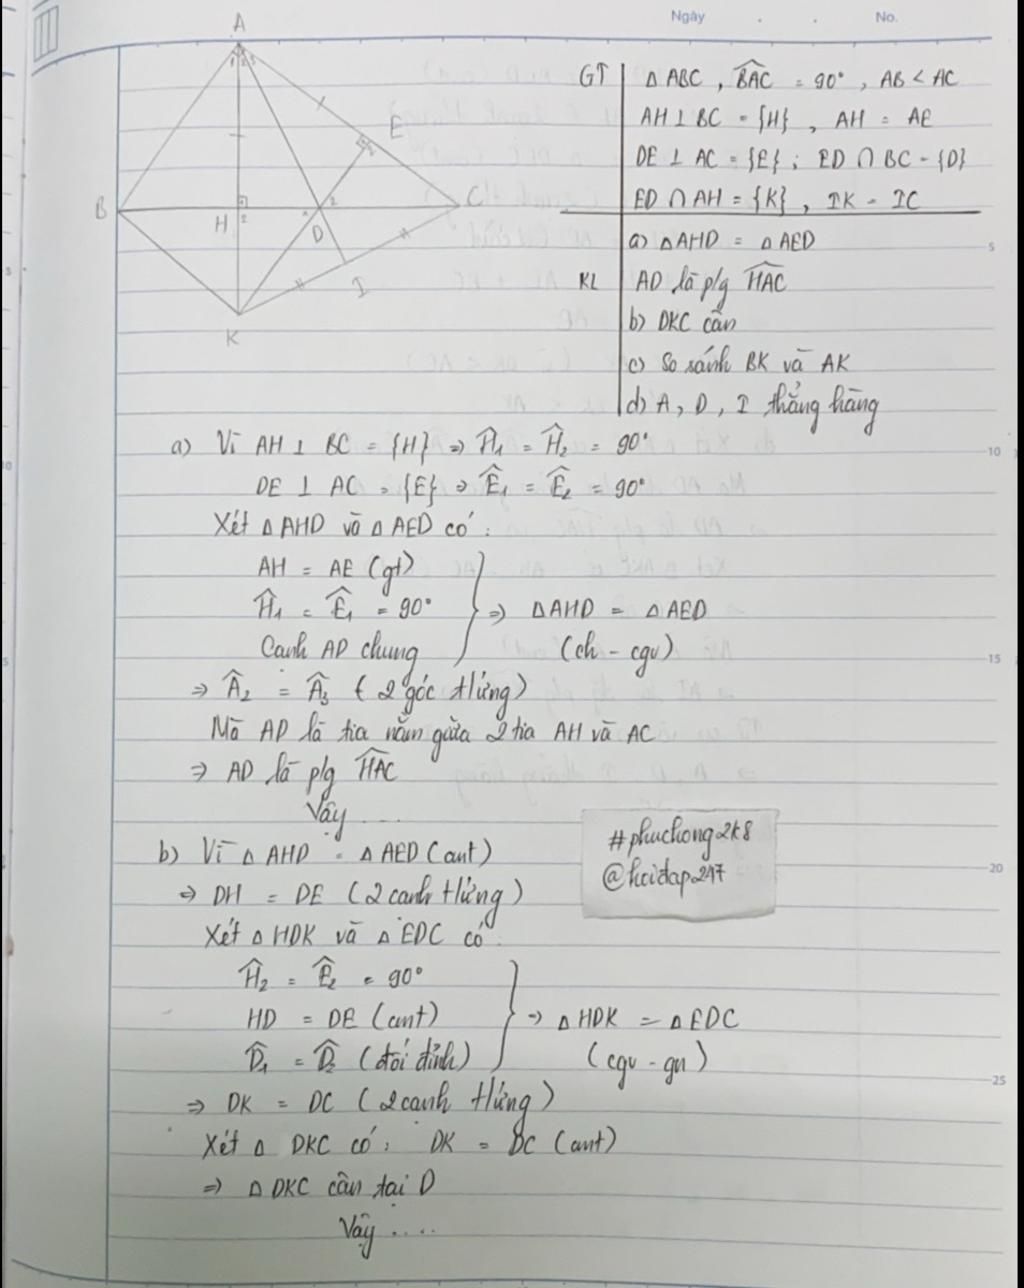 Ngày . . No.
A
1 2 3
E
B
H
1
2
D
1
2
C
I
K
GT
△ABC, B̂AC = 90°, AB < AC
AH ⊥ BC = {H}, AH = AE
DE ⊥ AC = {E}; ED ∩ BC = {D}
ED ∩ AH = {K}, IK = IC
KL
a) △AHD = △AED
AD là p/g ĤAC
b) DKC cân
c) So sánh BK và AK
d) A, D, I thẳng hàng
5
10
15
20
25
a) Vì AH ⊥ BC = {H} => Ĥ₁ = Ĥ₂ = 90°
DE ⊥ AC = {E} => Ê₁ = Ê₂ = 90°
Xét △AHD và △AED có:
AH = AE (gt)
Ĥ₁ = Ê₁ = 90° => △AHD = △AED
Cạnh AD chung (ch - cgv)
=> Â₂ = Â₃ (2 góc tứng)
Mà AD là tia nằm giữa 2 tia AH và AC
=> AD là p/g ĤAC
Vậy ....
b) Vì △AHD = △AED (cmt)
=> DH = DE (2 cạnh tứng)
Xét △HDK và △EDC có:
Ĥ₂ = Ê₂ = 90°
HD = DE (cmt) => △HDK = △EDC
D̂₁ = D̂₂ (đối đỉnh) (cgv - gn)
=> DK = DC (2 cạnh tứng)
Xét △DKC có: DK = DC (cmt)
=> △DKC cân tại D
Vậy ....
#phuchong2k8
@hoidap247